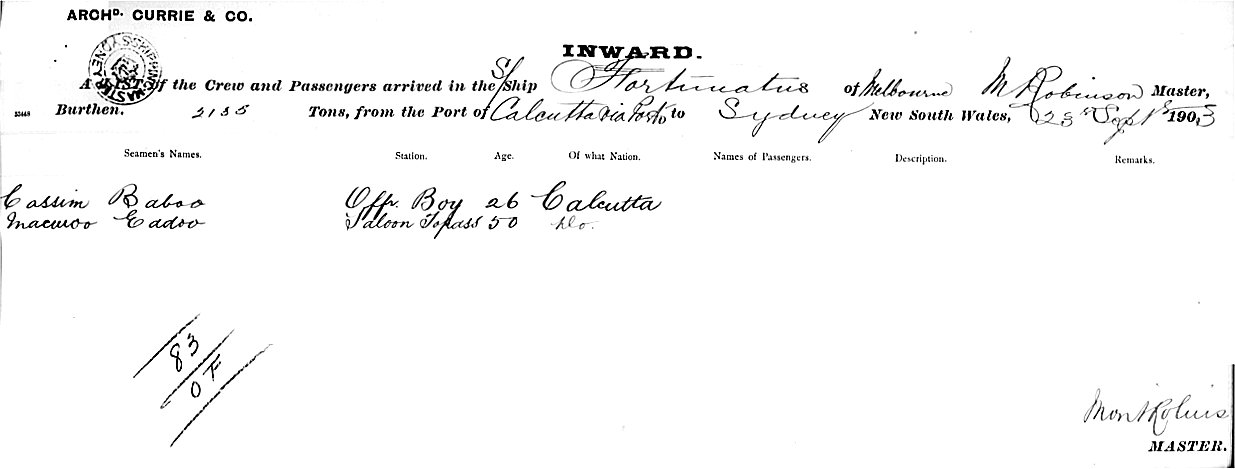 ARCHD. CURRIE & CO.
INWARD.
A LIST of the Crew and Passengers arrived in the S/Ship Fortunatus of Melbourne M Robinson Master,
33448 Burthen. 2135 Tons, from the Port of Calcutta via Ports to Sydney New South Wales, 23rd Sept 1903
Seamen's Names. Station. Age. Of what Nation. Names of Passengers. Description. Remarks.
Cassim Baboo Offr. Boy 26 Calcutta
Eadoo Saloon Topass 50 Do.
83
OF
MASTER.